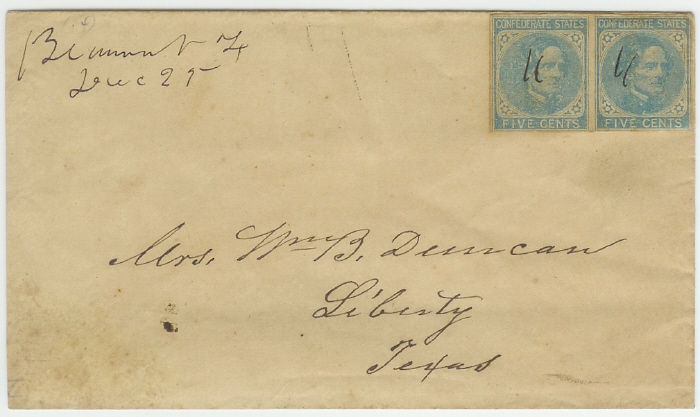 Beaumont Tx
Dec 25
CONFEDERATE STATES
FIVE CENTS
CONFEDERATE STATES
FIVE CENTS
Mrs. Wm B. Duncan
Liberty
Texas